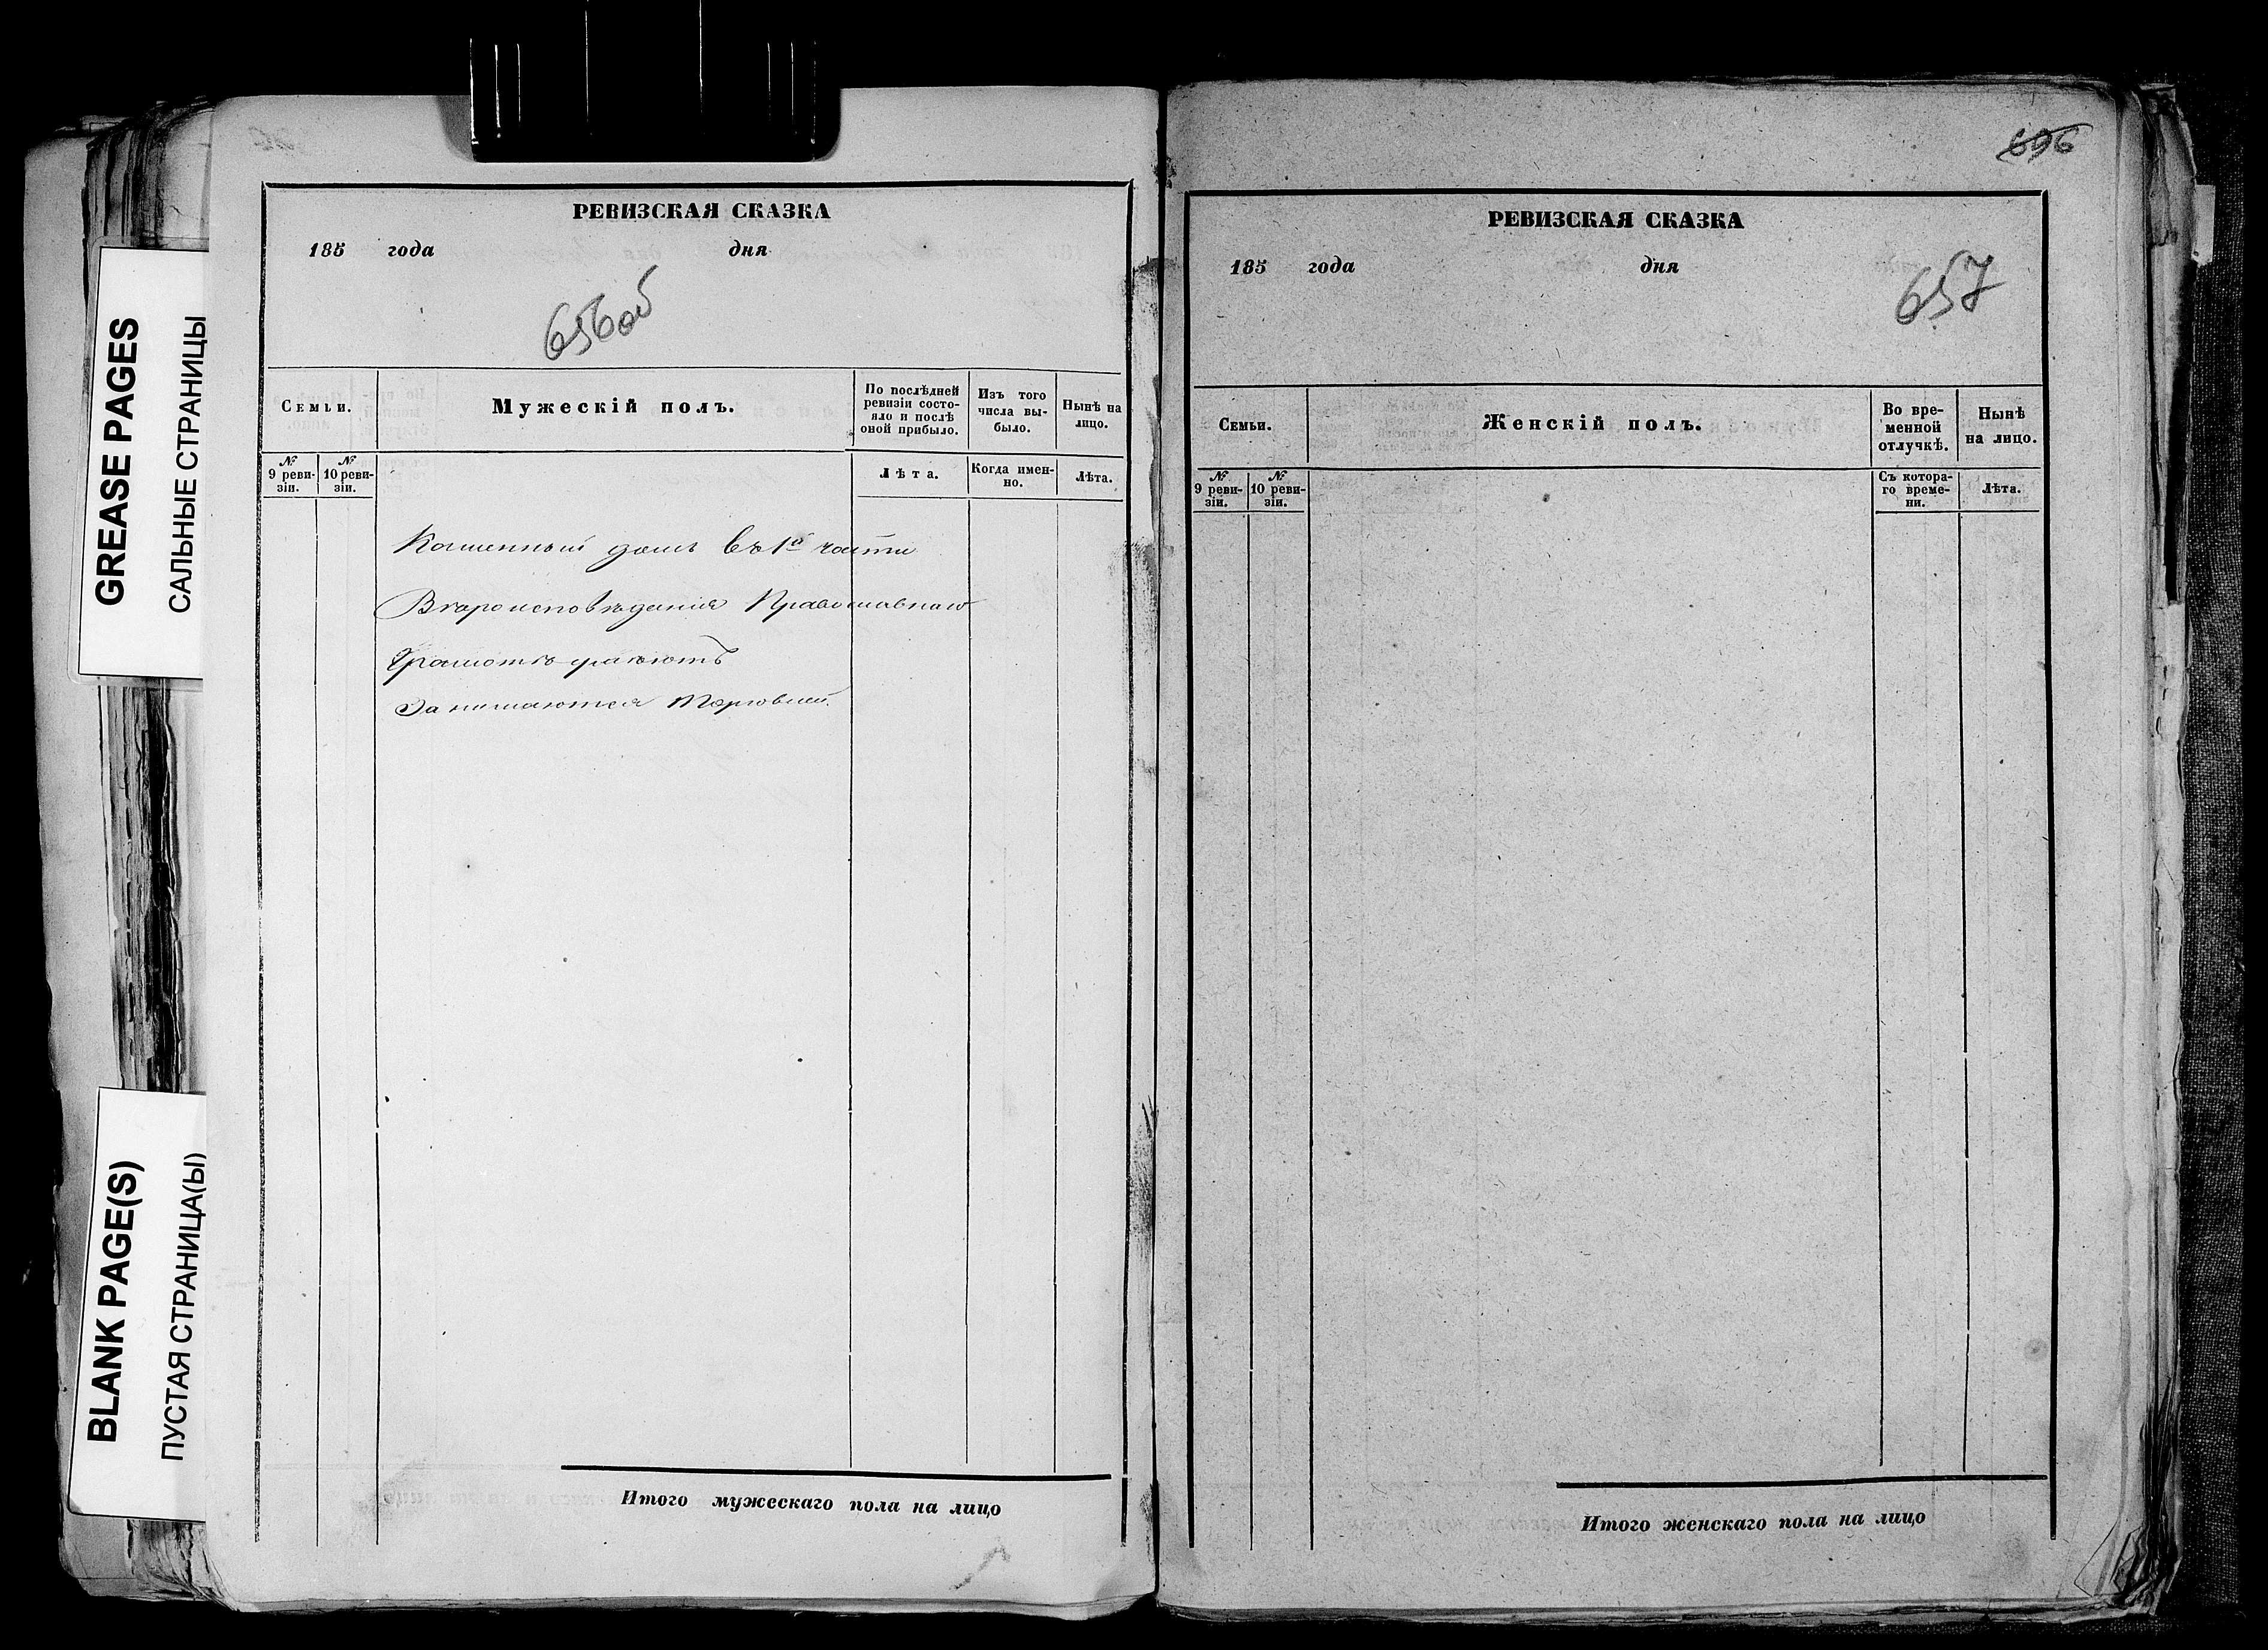 GREASE PAGES
САЛЬНЫЕ СТРАНИЦЫ
BLANK PAGE(S)
ПУСТАЯ СТРАНИЦА(Ы)
РЕВИЗСКАЯ СКАЗКА
185 года дня
656об
Семьи.
Мужескій полъ.
По послѣдней
ревизіи состо-
яло и послѣ
оной прибыло.
Изъ того
числа вы-
было.
Нынѣ на
лицо.
№
9 реви-
зіи.
№
10 реви-
зіи.
Лѣта.
Когда имен-
но.
Лѣта.
Каменный домъ въ 1й части
Вѣроисповѣданія Православнаго
Грамотѣ умѣютъ
Занимаются Торговлей.
Итого мужескаго пола на лицо
696
РЕВИЗСКАЯ СКАЗКА
185 года дня
657
Семьи.
Женскій полъ.
Во вре-
менной
отлучкѣ.
Нынѣ
на лицо.
№
9 реви-
зіи.
№
10 реви-
зіи.
Съ котора-
го време-
ни.
Лѣта.
Итого женскаго пола на лицо